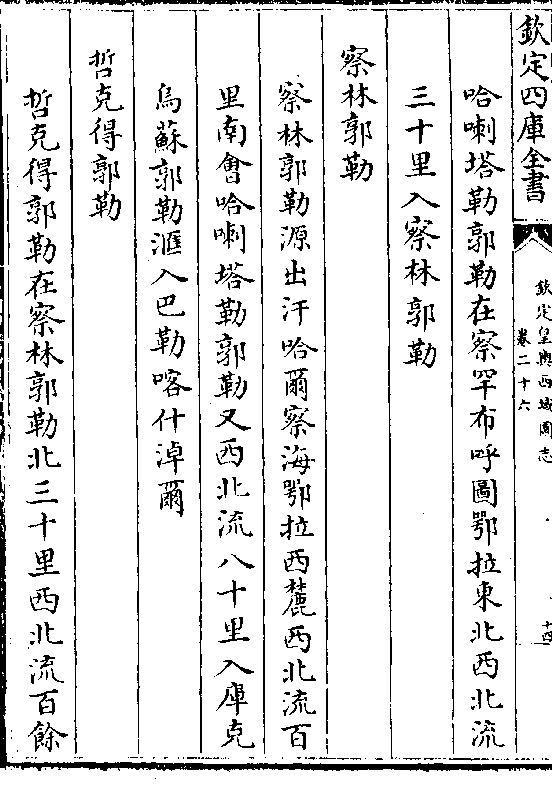 欽定四庫全書
欽定皇輿西域圖志
卷二十六
十四
哈喇塔勒郭勒在察罕布呼圖鄂拉東北西北流
三十里入察林郭勒
察林郭勒
察林郭勒源出汗哈爾察海鄂拉西麓西北流百
里南會哈喇塔勒郭勒又西北流八十里入庫克
烏蘇郭勒滙入巴勒喀什淖爾
哲克得郭勒
哲克得郭勒在察林郭勒北三十里西北流百餘